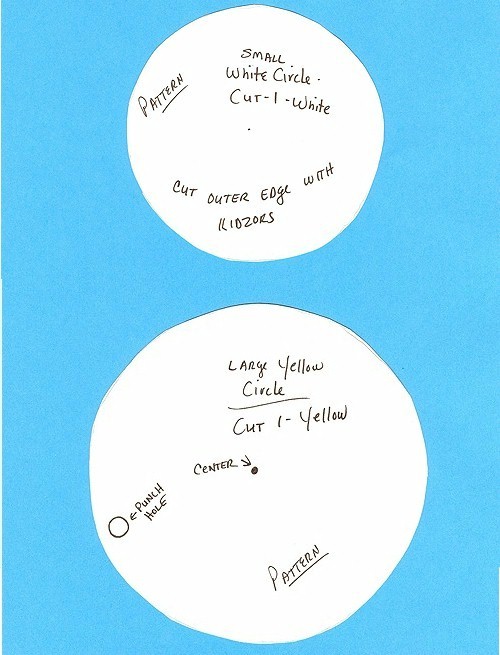 SMALL
White Circle.
CUT-1-White
PATTERN
CUT OUTER EDGE WITH
KIDZORS
LARGE Yellow
Circle
CUT 1-Yellow
CENTER
PUNCH
HOLE
PATTERN